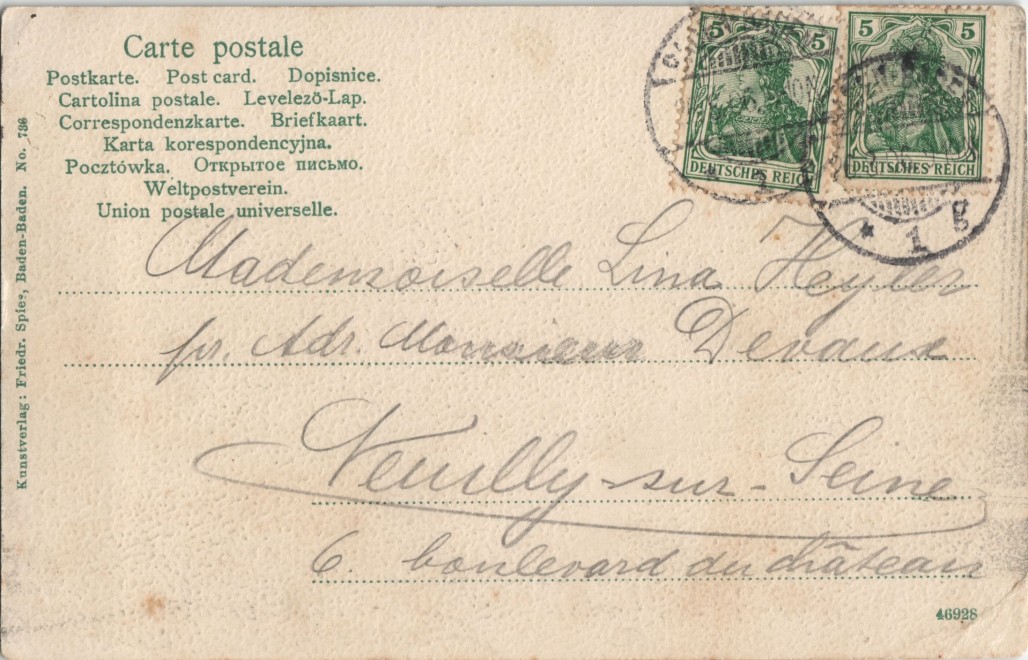 Carte postale
Postkarte. Post card. Dopisnice.
Cartolina postale. Levelezõ-Lap.
Correspondenzkarte. Briefkaart.
Karta korespondencyjna.
Pocztówka. Открытое письмо.
Weltpostverein.
Union postale universelle.
5 5
DEUTSCHES REICH
5 5
DEUTSCHES REICH
* 1 g
Mademoiselle Lina Heyler
pr. Adr. Monsieur Devaux
Neuilly-sur-Seine
6. boulevard du château
46928
Kunstverlag: Friedr. Spies, Baden-Baden. No. 736